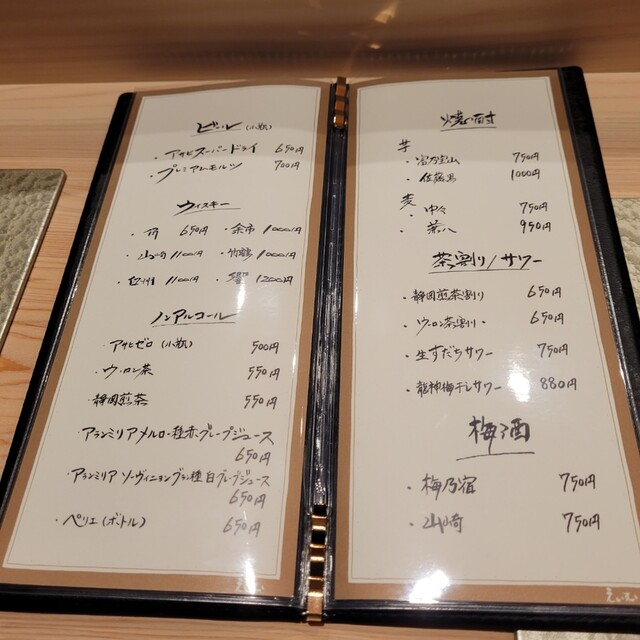 ビール(小瓶)
・アサヒスーパードライ 650円
・プレミアムモルツ 700円
ウィスキー
・角 650円 ・余市 1000円
・山崎 1100円 ・竹鶴 1000円
・白州 1100円 ・響 1200円
ノンアルコール
・アサヒゼロ(小瓶) 500円
・ウーロン茶 550円
・静岡煎茶 550円
・アランミリアメルロー種赤グレープジュース
650円
・アランミリアソーヴィニヨンブラン種白グレープジュース
650円
・ペリエ(ボトル) 650円
焼酎
芋
・富乃宝山 750円
・佐藤黒 1000円
麦
・中々 750円
・兼八 950円
茶割り/サワー
・静岡煎茶割り 650円
・ウーロン茶割り・ 650円
・生すだちサワー 750円
・龍神梅干しサワー 880円
梅酒
・梅乃宿 750円
・山崎 750円